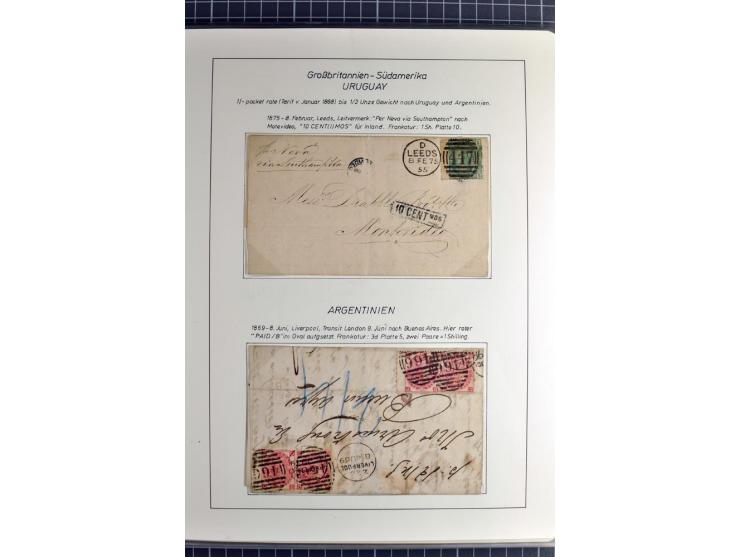 Großbritannien - Südamerika
URUGUAY
1/- packet rate (Tarif v. Januar 1868) bis 1/2 Unze Gewicht nach Uruguay und Argentinien.
1875 - 8. Februar, Leeds, Leitvermerk: "Per Neva via Southampton" nach
Motevideo, "10 CENT(I)MOS" für Inland. Frankatur: 1 Sh. Platte 10.
Per Neva
via Southampton
D
LEEDS
8 FE 75
55
447
10 CENT MOS
Montevideo
ARGENTINIEN
1869 - 8. Juni, Liverpool, Transit London 9. Juni nach Buenos Aires. Hier roter
"PAID/B" im Oval aufgsetzt. Frankatur: 3d Platte 5, zwei Paare = 1 Shilling.
466
466
LIVERPOOL
8 JU 69
466
466